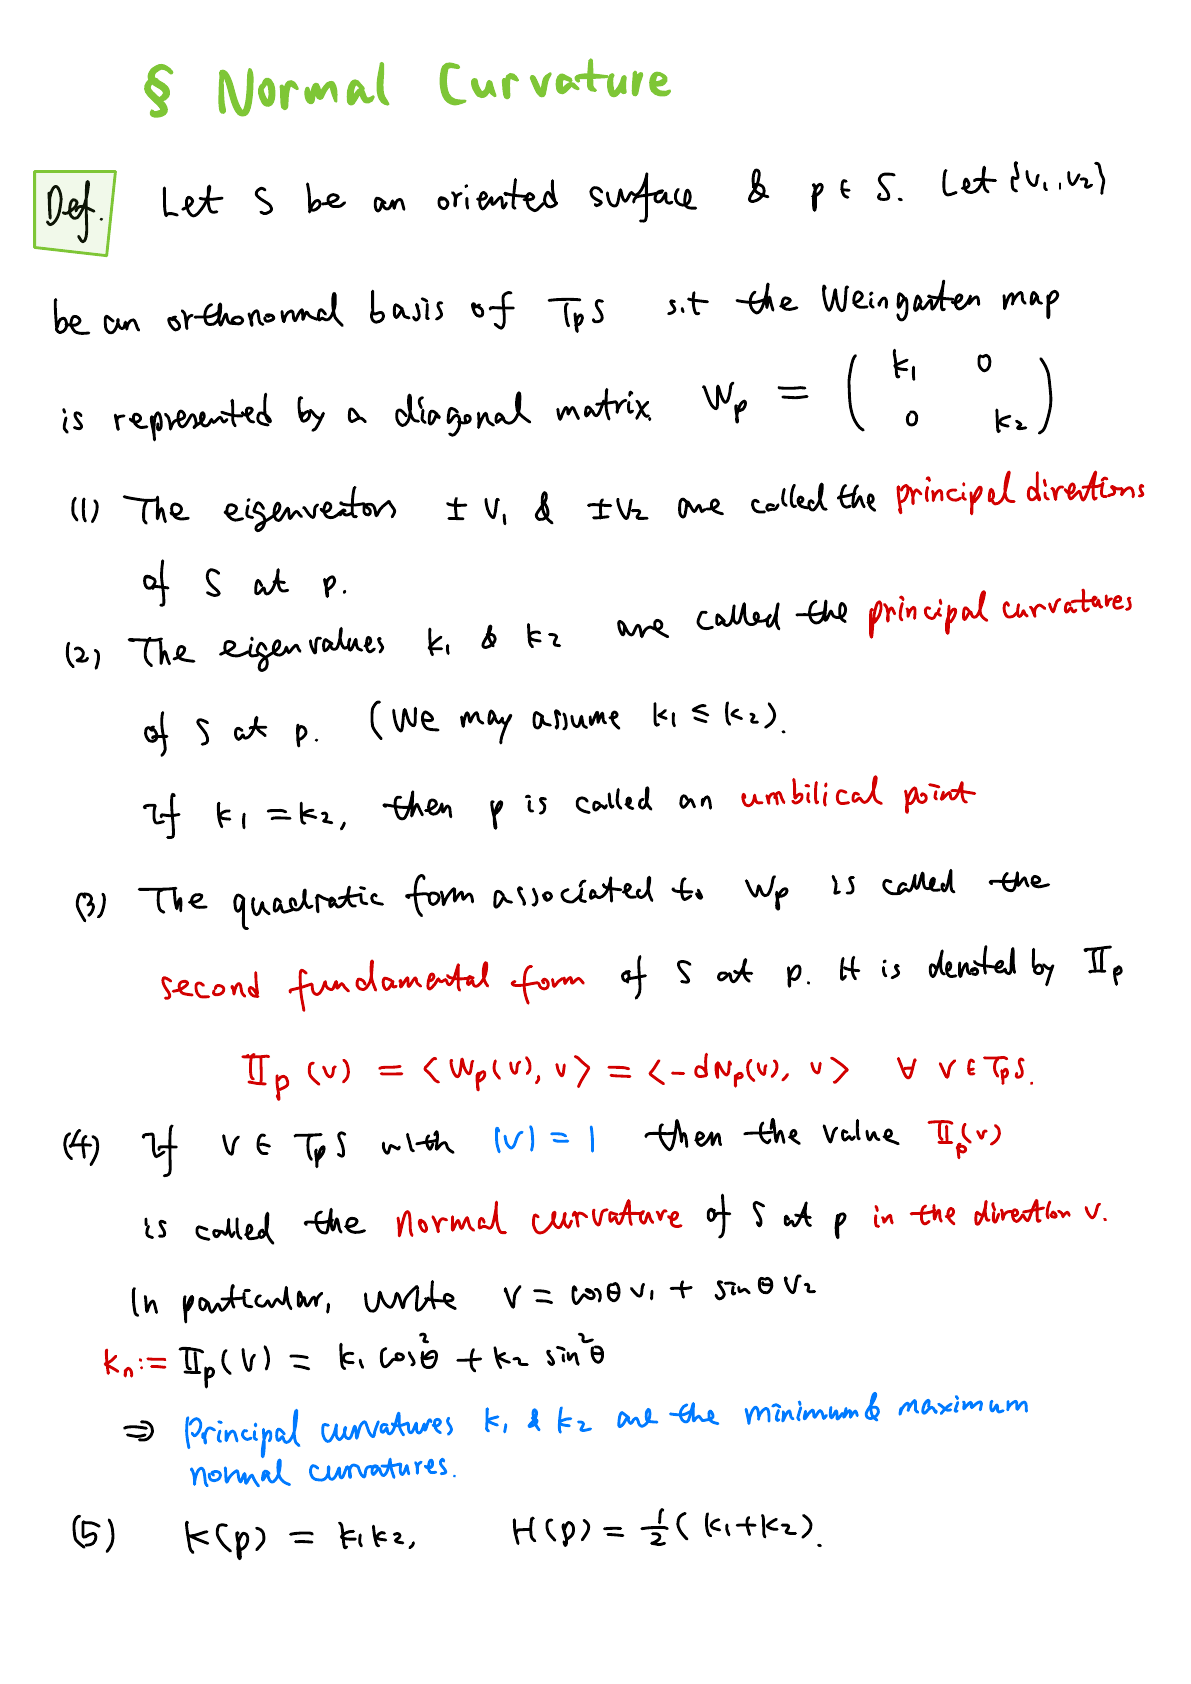 § Normal Curvature
Def. Let S be an oriented surface & p ∈ S. Let {v₁, v₂}
be an orthonormal basis of TpS s.t the Weingarten map
is represented by a diagonal matrix Wp = ( k₁ 0
0 k₂ )
(1) The eigenvectors ± v₁ & ± v₂ are called the principal directions
of S at p.
(2) The eigenvalues k₁ & k₂ are called the principal curvatures
of S at p. (We may assume k₁ ≤ k₂).
If k₁ = k₂, then p is called an umbilical point
(3) The quadratic form associated to Wp is called the
second fundamental form of S at p. It is denoted by IIp
IIp (v) = <Wp(v), v> = <-dNp(v), v> ∀ v ∈ TpS.
(4) If v ∈ TpS with |v| = 1 then the value IIp(v)
is called the normal curvature of S at p in the direction v.
In particular, write v = cosθ v₁ + sinθ v₂
kn := IIp(v) = k₁ cos²θ + k₂ sin²θ
⇒ Principal curvatures k₁ & k₂ are the minimum & maximum
normal curvatures.
(5) K(p) = k₁k₂, H(p) = ½(k₁+k₂).